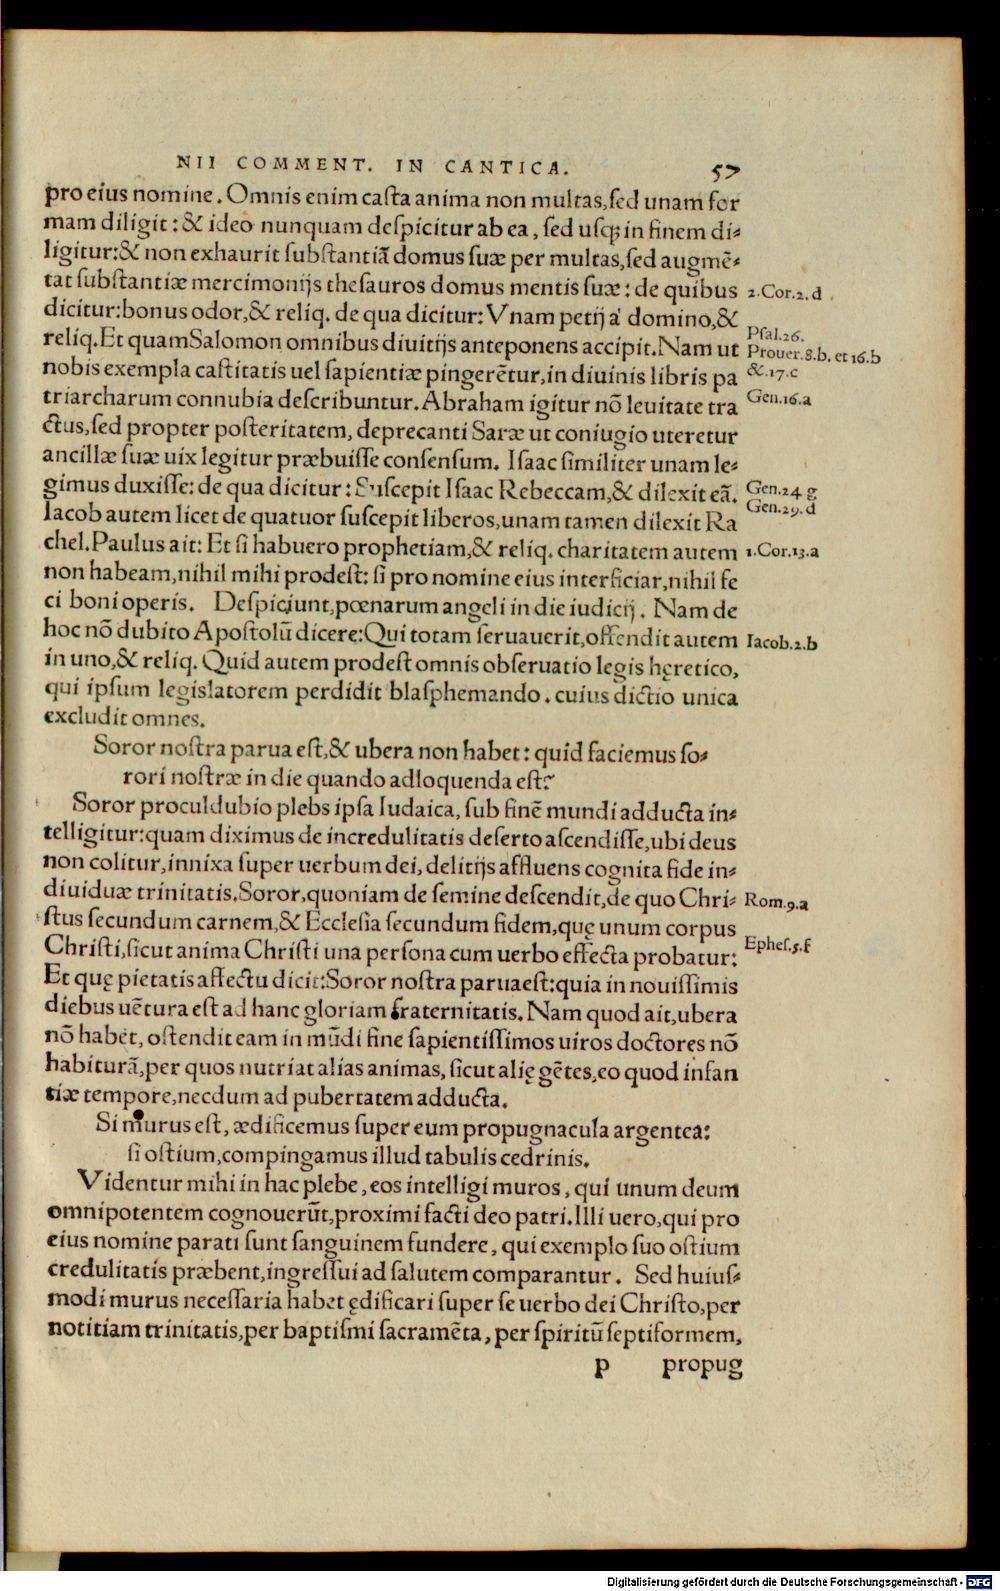 NII COMMENT. IN CANTICA. 57
pro eius nomine. Omnis enim casta anima non multas, sed unam for
mam diligit: & ideo nunquam despicitur ab ea, sed usq; in finem di-
ligitur: & non exhaurit substantiã domus suæ per multas, sed augmẽ-
tat substantiæ mercimonijs thesauros domus mentis suæ: de quibus
2.Cor.2.d
dicitur: bonus odor, & reliq. de qua dicitur: Vnam petij à domino, &
Psal.26.
reliq. Et quam Salomon omnibus diuitijs anteponens accipit. Nam ut
Prouer.8.b. et 16.b
nobis exempla castitatis uel sapientiæ pingerẽtur, in diuinis libris pa
&.17.c
triarcharum connubia describuntur. Abraham igitur nõ leuitate tra
Gen.16.a
ctus, sed propter posteritatem, deprecanti Saræ ut coniugio uteretur
ancillæ suæ uix legitur præbuisse consensum. Isaac similiter unam le-
gimus duxisse: de qua dicitur: Suscepit Isaac Rebeccam, & dilexit eã.
Gen.24 g
Iacob autem licet de quatuor suscepit liberos, unam tamen dilexit Ra
Gen.29.d
chel. Paulus ait: Et si habuero prophetiam, & reliq. charitatem autem
1.Cor.13.a
non habeam, nihil mihi prodest: si pro nomine eius interficiar, nihil fe
ci boni operis. Despiciunt, pœnarum angeli in die iudicij. Nam de
hoc nõ dubito Apostolũ dicere: Qui totam seruauerit, offendit autem
Iacob.2.b
in uno, & reliq. Quid autem prodest omnis obseruatio legis hęretico,
qui ipsum legislatorem perdidit blasphemando. cuius dictio unica
excludit omnes.
Soror nostra parua est, & ubera non habet: quid faciemus so-
rori nostræ in die quando adloquenda est?
Soror proculdubio plebs ipsa Iudaica, sub finẽ mundi adducta in-
telligitur: quam diximus de incredulitatis deserto ascendisse, ubi deus
non colitur, innixa super uerbum dei, delitijs affluens cognita fide in-
diuiduæ trinitatis. Soror, quoniam de semine descendit, de quo Chri-
Rom.9.a
stus secundum carnem, & Ecclesia secundum fidem, quę unum corpus
Christi, sicut anima Christi una persona cum uerbo effecta probatur:
Ephes.5.f
Et quę pietatis affectu dicit: Soror nostra parua est: quia in nouissimis
diebus uẽtura est ad hanc gloriam fraternitatis. Nam quod ait, ubera
nõ habet, ostendit eam in mũdi fine sapientissimos uiros doctores nõ
habiturã, per quos nutriat alias animas, sicut alię gẽtes, eo quod infan
tiæ tempore, necdum ad pubertatem adducta.
Si murus est, ædificemus super eum propugnacula argentea:
si ostium, compingamus illud tabulis cedrinis.
Videntur mihi in hac plebe, eos intelligi muros, qui unum deum
omnipotentem cognouerũt, proximi facti deo patri. Illi uero, qui pro
eius nomine parati sunt sanguinem fundere, qui exemplo suo ostium
credulitatis præbent, ingressui ad salutem comparantur. Sed huius-
modi murus necessaria habet ędificari super se uerbo dei Christo, per
notitiam trinitatis, per baptismi sacramẽta, per spiritũ septiformem,
p propug
Digitalisierung gefördert durch die Deutsche Forschungsgemeinschaft - DFG